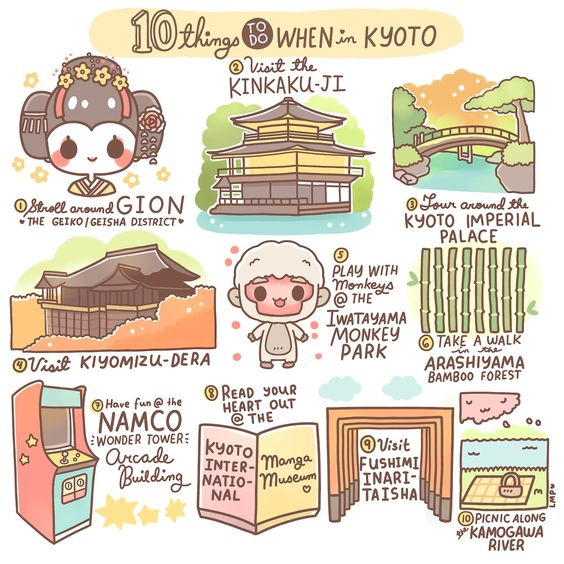 10 things TO DO WHEN in KYOTO
1 Stroll around GION
• THE GEIKO/GEISHA DISTRICT •
2 Visit the
KINKAKU-JI
3 Tour around the
KYOTO IMPERIAL
PALACE
4 Visit KIYOMIZU-DERA
5
PLAY WITH
Monkeys
@ THE
IWATAYAMA
MONKEY
PARK
6 TAKE A WALK
in the
ARASHIYAMA
BAMBOO FOREST
7 Have fun @ the
NAMCO
WONDER TOWER
Arcade
Building
8 READ YOUR
HEART OUT
@ THE
KYOTO
INTER-
NATIO-
NAL
Manga
Museum
9 Visit
FUSHIMI
INARI-
TAISHA
10 PICNIC ALONG
the KAMOGAWA
RIVER
LMP